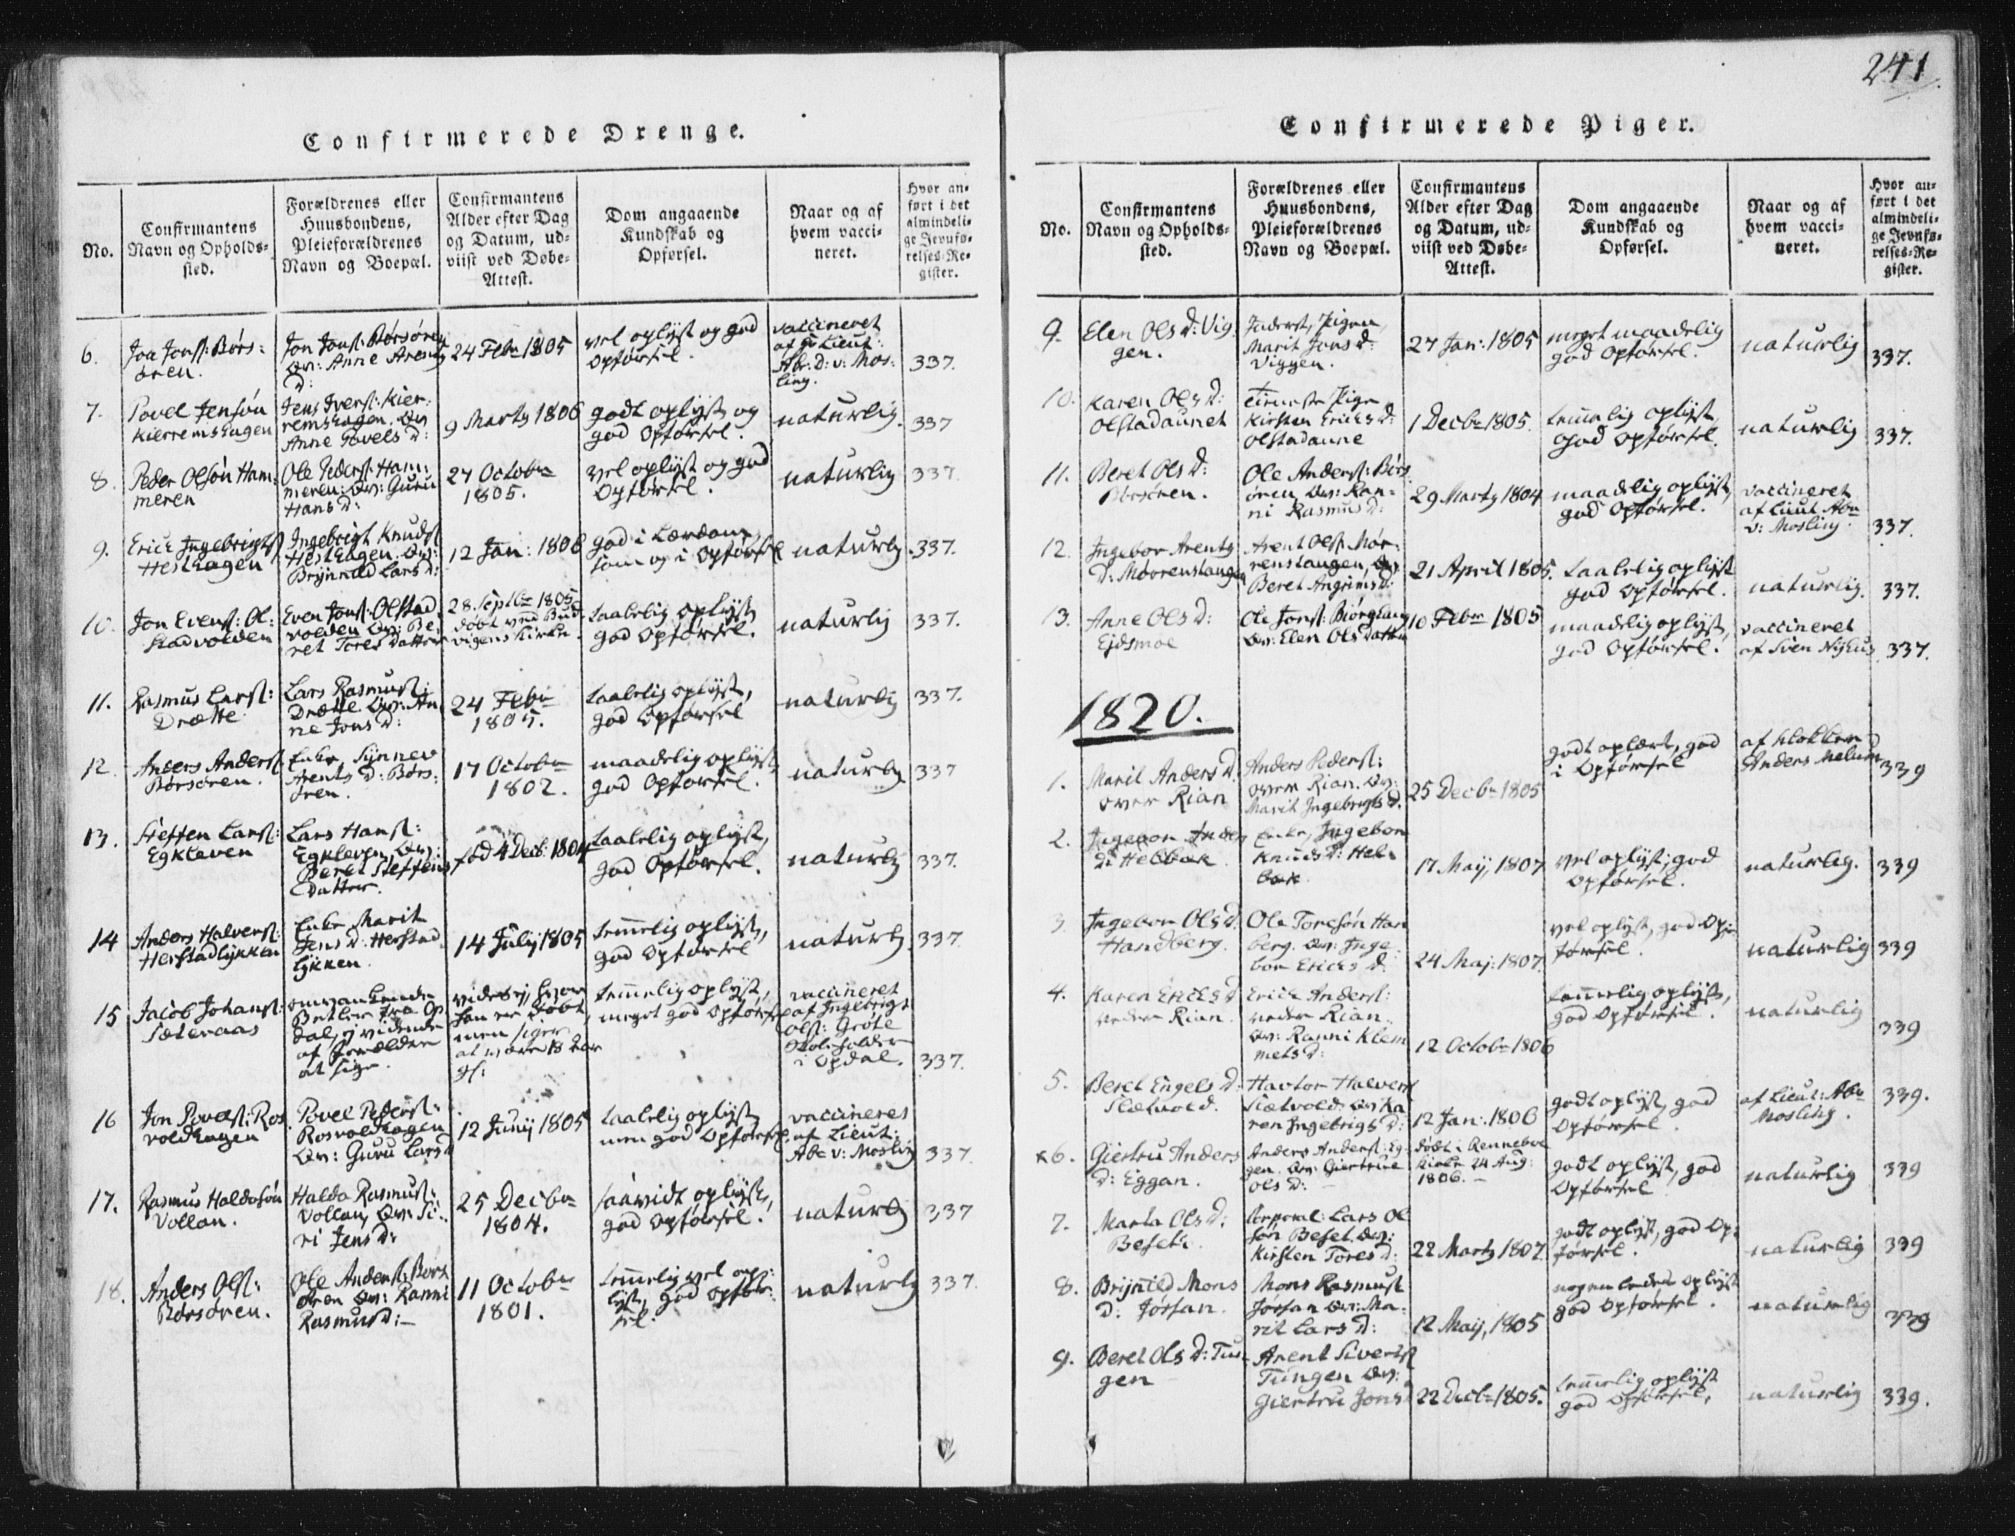 241
Confirmerede Drenge.
No.
Confirmantens
Navn og Opholds-
sted.
Forældrenes eller
Huusbondens,
Pleieforældrenes
Navn og Boepæl.
Confirmantens
Alder efter Dag
og Datum, ud-
viist ved Døbe-
Attest.
Dom angaaende
Kundskab og
Opførsel.
Naar og af
hvem vacci-
neret.
Hvor an-
ført i det
almindeli-
ge Jevnfø-
relses-Re-
gister.
6.
Joa Jonss: Børs:
øren.
Jon Jonss: Børsøren
Qv: Anne Arents
D:
24 Febr 1805
vel oplyst og god
Opførsel.
vaccineret
af Lieut:
Abr: D: v: Mos-
ling.
337.
7.
Povel Jensøn
Kierremshagen
Jens Iverss: Kier-
remshagen. Qv:
Anne Povels D:
9 Marty 1806
godt oplyst og
god Opførsel.
naturlig.
337
8.
Peder Olsøn Ham:
meren
Ole Peders: Ham:
meren: Qv: Guru
Hans D:
27 Octobr
1805.
vel oplyst og god
Opførsel.
naturlig
337
9.
Erich Ingebrigts:
Heshagen
Ingebrigt Knuds:
Heshagen. Qv:
Brynnild Lars D:
12 Jan: 1806
god i Lærdom
som og i Opførsel
naturlig
337.
10.
Jon Evens: Ol-
stadvolden
Even Jons: Olstad
volden Qv: Be-
ret Tores Datter
28 Septbr 1805
døbt ved Bud-
vigens Kirke.
taalelig oplyst,
god Opførsel.
naturlig
337.
11.
Rasmus Lars:
Drætte.
Lars Rasmus:
Drætte. Qv: An-
ne Jons D:
24 Febr
1805.
taalelig oplyst,
god Opførsel
naturlig
337.
12.
Anders Anders:
Børsøren.
Enke, Synnev
Arents D: Børs-
øren.
17 Octobr
1802.
maadelig oplyst,
god Opførsel.
naturlig
337
13.
Steffen Lars:
Egkleven
Lars Hans:
Egkleven, Qv:
Beret Steffens
Datter.
fød 4 Decb: 1804
taalelig oplyst,
god Opførsel.
naturlig
337.
14
Anders Halvers:
Herstadlykken
Enke Marit
Jens D: Herstad-
lykken.
14 July 1805
temmelig oplyst,
god Opførsel
naturlig
337.
15
Jacob Johans:
Sæteraas
omvankende
Betler fra Op-
dal, ej vidende
af Forældre
at sige.
vides ej hvor
han er døbt
men siger
at være 18 Aar
gl:
temmelig oplyst,
meget god Opførsel
vaccineret
af Ingebrigt
Ols: Grøte
Skoleholder
i Opdal.
337.
16
Jon Povels: Ros-
voldhagen
Povel Peders:
Rosvoldhagen
Qv: Guru Lars D
12 Juny 1805
taalelig oplyst
men god Opførsel
vaccineret
af Lieut:
Abr v: Mosling
337.
17.
Rasmus Haldosøn
Vollan.
Haldo Rasmus:
Vollan, Qv: Si-
ri Jens D:
25 Decbr
1804.
saavidt oplyst,
god Opførsel.
naturlig
337
18.
Anders Ols:
Børsøren.
Ole Anders: Børs
øren Qv: Ranni
Rasmus D:
11 Octobr
1801.
temmelig vel op-
lyst, god Opfør-
sel.
naturlig
337.
Confirmerede Piger.
No.
Confirmantens
Navn og Opholds-
sted.
Forældrenes eller
Huusbondens,
Pleieforældrenes
Navn og Boepæl.
Confirmantens
Alder efter Dag
og Datum, ud-
viist ved Døbe-
Attest.
Dom angaaende
Kundskab og
Opførsel.
Naar og af
hvem vacci-
neret.
Hvor an-
ført i det
almindeli-
ge Jevnfø-
relses-Re-
gister.
9.
Elen Ols D: Vig-
gen.
Inderst, Pigen,
Marit Jons D:
Viggen.
27 Jan: 1805
meget maadelig
god Opførsel.
naturlig
337.
10.
Karen Ols D:
Olstadaunet
Pige
Kirsten Erichs D:
Olstadaune
1 Decbr 1805.
temmelig oplyst,
god Opførsel.
naturlig
337.
11.
Beret Ols D:
Børsøren.
Ole Anders: Børs
øren Qv: Ran-
ni Rasmus D:
29 Marty 1804
maadelig oplyst,
god Opførsel.
vaccineret
af Lieut Abr
v: Mosling.
337.
12.
Ingebor Arents
D: Mørrenslangen
Arent Ols: Mør-
renslangen, Qv:
Beret Angrims D:
21 April 1805.
taalelig oplyst
god Opførsel.
naturlig.
337.
13.
Anne Ols D:
Ejdsmoe
Ole Jons: Biørglang
Qv: Elen Ols Datter
10 Febr 1805
maadelig oplyst,
god Opførsel.
vaccineret
af Sven Nyhus
337.
1820.
1.
Marit Anders D.
over Rian
Anders Peders:
over Rian. Qv:
Marit Ingebrigts D.
25 Decbr 1805
godt oplært, god
i Opførsel
af Klokker
Anders Melum
339
2.
Ingebor Anders
D: Helbæk
Enke, Ingebor
Knuds D: Hel-
bæk.
17 Maj, 1807
vel oplyst, god
Opførsel.
naturlig.
339
3.
Ingebor Ols D:
Handberg.
Ole Toresøn Han
berg. Qv: Inge-
bor Erichs D:
24 Maj: 1807.
vel oplyst, god Op-
førsel.
naturlig
339
4.
Karen Erichs D
neder Rian.
Erich Anders:
neder Rian.
Qv: Ranni Klem
mets D:
12 Octobr 1806
temmelig oplyst,
god Opførsel.
naturlig
339
5.
Beret Engels D:
Slætvold.
Havtor Halvers
Slætvold. Qv: Ka
ren Ingebrigts D:
12 Jan: 1806
godt oplyst, god
Opførsel.
af Lieut: Abr
Mosling.
339.
x6.
Giertru Anders
D: Eggan.
Anders Anders: Eg-
gen. Qv: Giertrue
Ols D:
døbt i Rennebue
Kirke 24 Aug:
1806.
godt oplyst, god
Opførsel
naturlig
339
7.
Marta Ols D:
Beset.
Corporal: Lars Ol
søn Beset. Qv:
Kirsten Tores D:
22 Marty 1807.
godt oplyst, god Op-
førsel.
naturlig
339
8.
Brynild Mons
D: Jørsan.
Mons Rasmus:
Jørsan Qv: Ma-
rit Lars D:
12 Maij, 1805
nogenledes oplyst
god Opførsel.
naturlig
339
9.
Beret Ols D: Tun-
gen
Arent Siverts
Tungen Qv:
Giertru Jons D
22 Decbr 1805.
temmelig oplyst
god Opførsel,
naturlig
339.